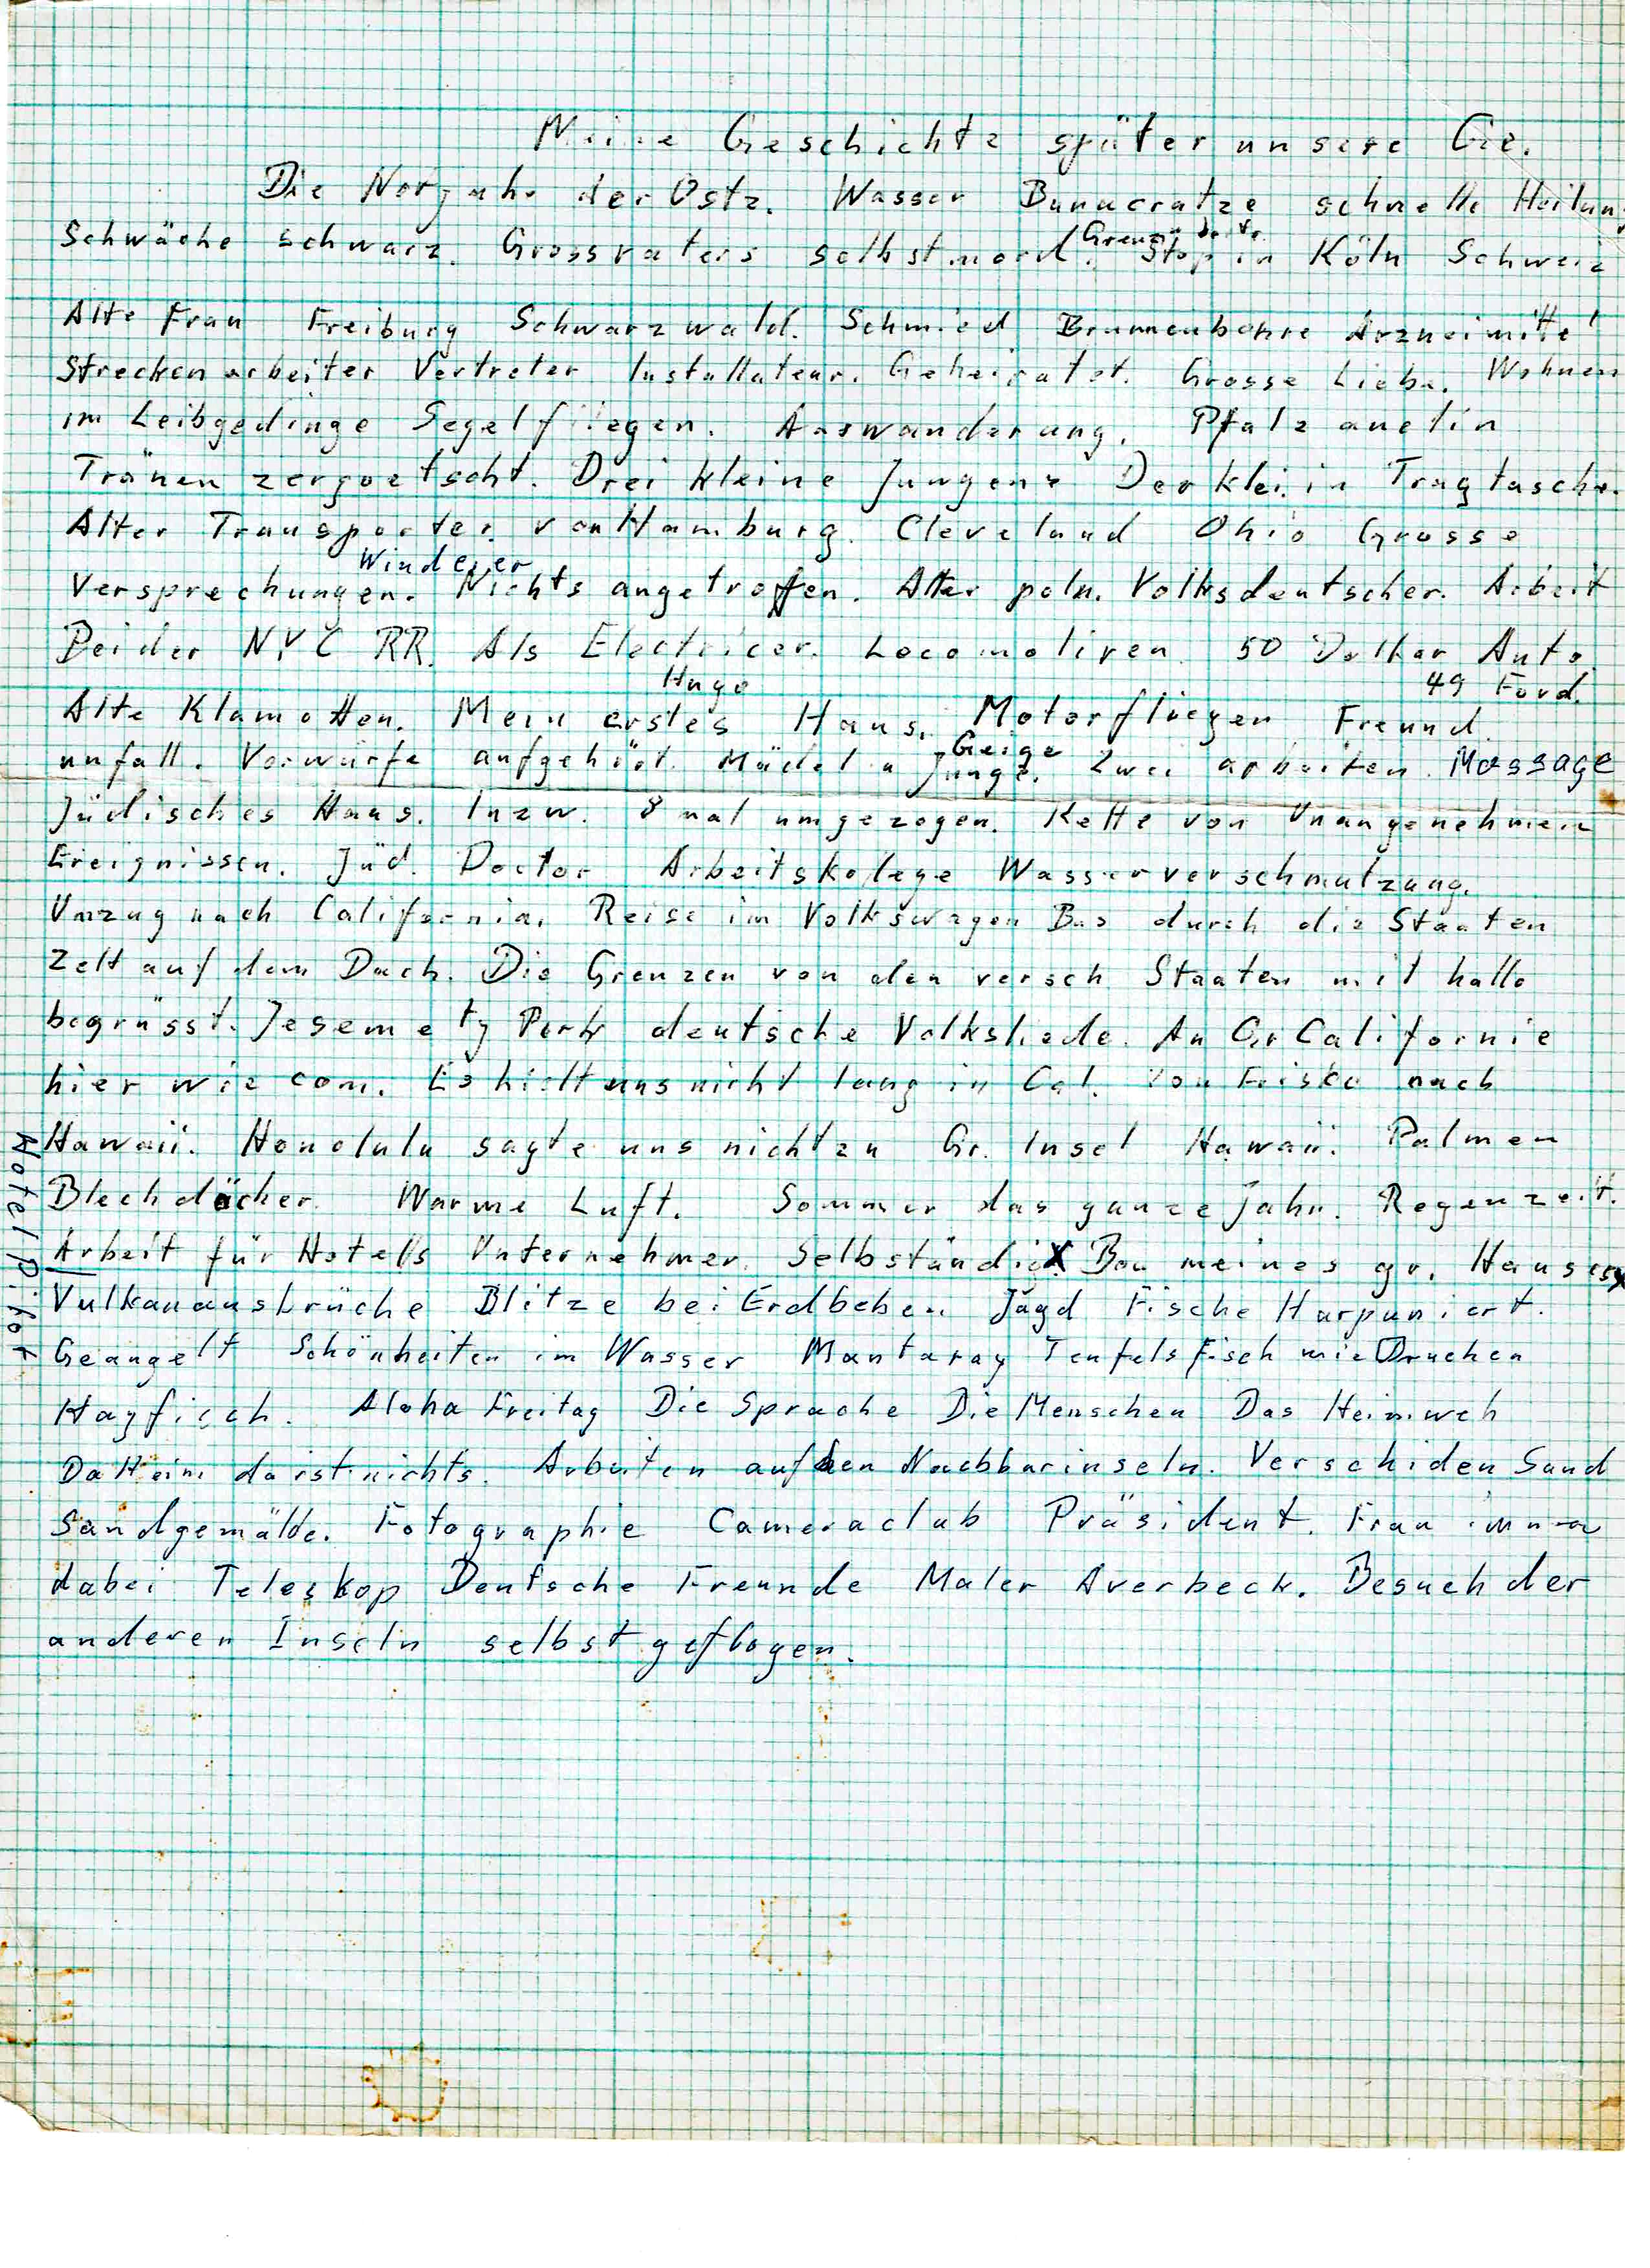 Meine Geschichte später unsere Ge.
Die der Ostz. Wasser schnelle Heilung
Schwäche schwarz. Grossvaters selbstmord. Stop in Köln Schweiz
Alte Frau Freiburg Schwarzwald. Schmied Brunnenbohre Arzneimittel
Streckenarbeiter Vertreter Installateur. Geheiratet. Grosse Liebe. Wohnen
im Leibgedinge Segelfliegen. Auswanderung. Pfalz
Tränen Drei kleine Jungens Der klei. in Tragtasche.
Alter Transporter von Hamburg. Cleveland Ohio Grosse
Winderer
Versprechungen. Nichts angetroffen. Alter poln. Volksdeutscher. Arbeit
Bei der NYC RR. Als Electricer. Locomotiven 50 Dollar Auto
Hugo 49 Ford.
Alte Klamotten. Mein erstes Haus. Motorfliegen Freund.
Geige
unfall. Vorwürfe aufgehört. Mädel u Junge. Zwei arbeiten. Massage
Jüdisches Haus. Inzw. 8 mal umgezogen. Kette von Unangenehmen
Ereignissen. Jüd. Doctor Arbeitskollege Wasserverschmutzung.
Umzug nach California. Reise im Volkswagen Bus durch die Staaten
Zelt auf dem Dach. Die Grenzen von den versch Staaten mit hallo
begrüsst. Jesemety Park deutsche Volksliede. An Or Californie
hier wie com. Es hielt uns nicht lang in Cal. Von Frisko nach
Hawaii. Honolulu sagte uns nicht zu Gr. Insel Hawaii. Palmen
Blechdächer. Warme Luft. Sommer das ganze Jahr. Regenzeit.
Arbeit für Hotells Unternehmer. Selbständig. Bau meines gr. Hauses
Vulkanausbrüche Blitze bei Erdbeben Jagd Fische Harpuniert.
Geangelt Schönheiten im Wasser Mantaray Teufelsfisch wie Drachen
Hayfisch. Aloha Freitag Die Sprache Die Menschen Das Heimweh
DaHeim da ist nichts. Arbeiten auf den Nachbarinseln. Verschiden Sand
Sandgemälde. Fotographie Cameraclub Präsident. Frau immer
dabei Teleskop Deutsche Freunde Maler Averbeck. Besuch der
anderen Inseln selbst geflogen.
Hotel